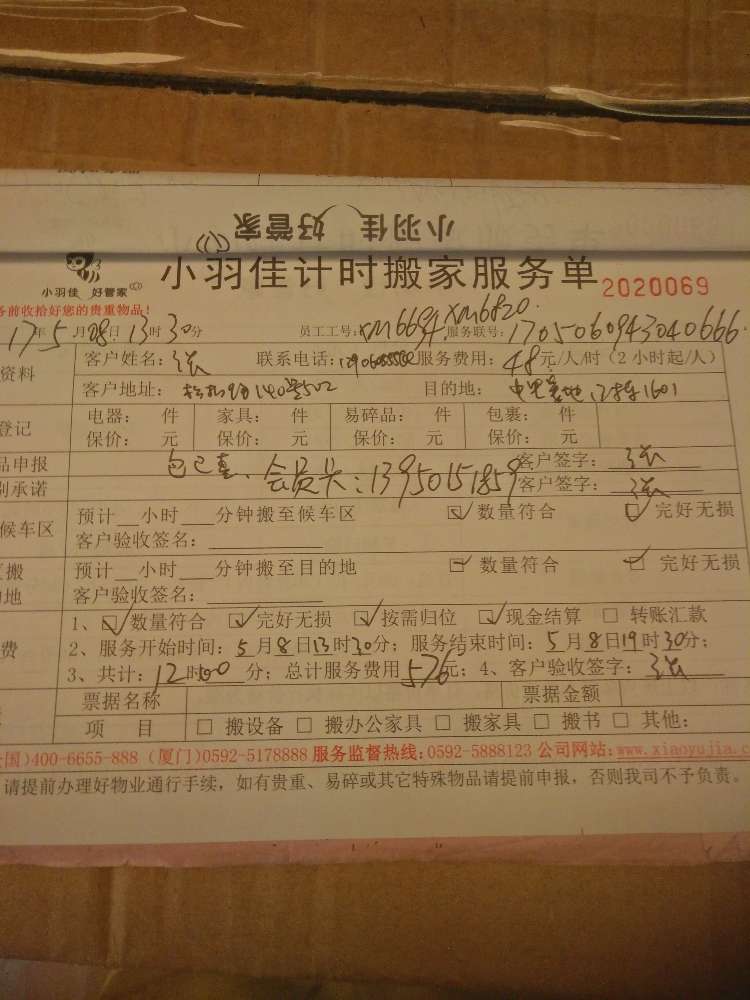 小羽佳 好管家
小羽佳 好管家
小羽佳计时搬家服务单 2020069
务前收拾好您的贵重物品!
17年5月08日13时30分 员工工号:XM6694 XM6820. 服务联号:1705060943040666.
资料 客户姓名:张 联系电话: 服务费用:48元/人/时(2小时起/人)
客户地址: 140号502 目的地: 1601
登记 电器: 件 家具: 件 易碎品: 件 包裹: 件
保价: 元 保价: 元 保价: 元 保价: 元
品申报 客户签字:张
别承诺 包已真、会员卡:13950151859 客户签字:张
候车区 预计__小时___分钟搬至候车区 ☑ 数量符合 ☑ 完好无损
客户验收签名:
搬 预计__小时___分钟搬至目的地 ☑ 数量符合 ☑ 完好无损
地 客户验收签名:
1、☑数量符合 ☑完好无损 ☑按需归位 ☑现金结算 ☐ 转账汇款
费 2、服务开始时间:5月8日13时30分;服务结束时间:5月8日19时30分;
3、共计:12时00分;总计服务费用576元;4、客户验收签字:张
票据名称 票据金额
项 目 ☐ 搬设备 ☐ 搬办公家具 ☐ 搬家具 ☐ 搬书 ☐ 其他:
国)400-6655-888 (厦门)0592-5178888 服务监督热线:0592-5888123 公司网站:www.xiaoyujia.c
请提前办理好物业通行手续,如有贵重、易碎或其它特殊物品请提前申报,否则我司不予负责。